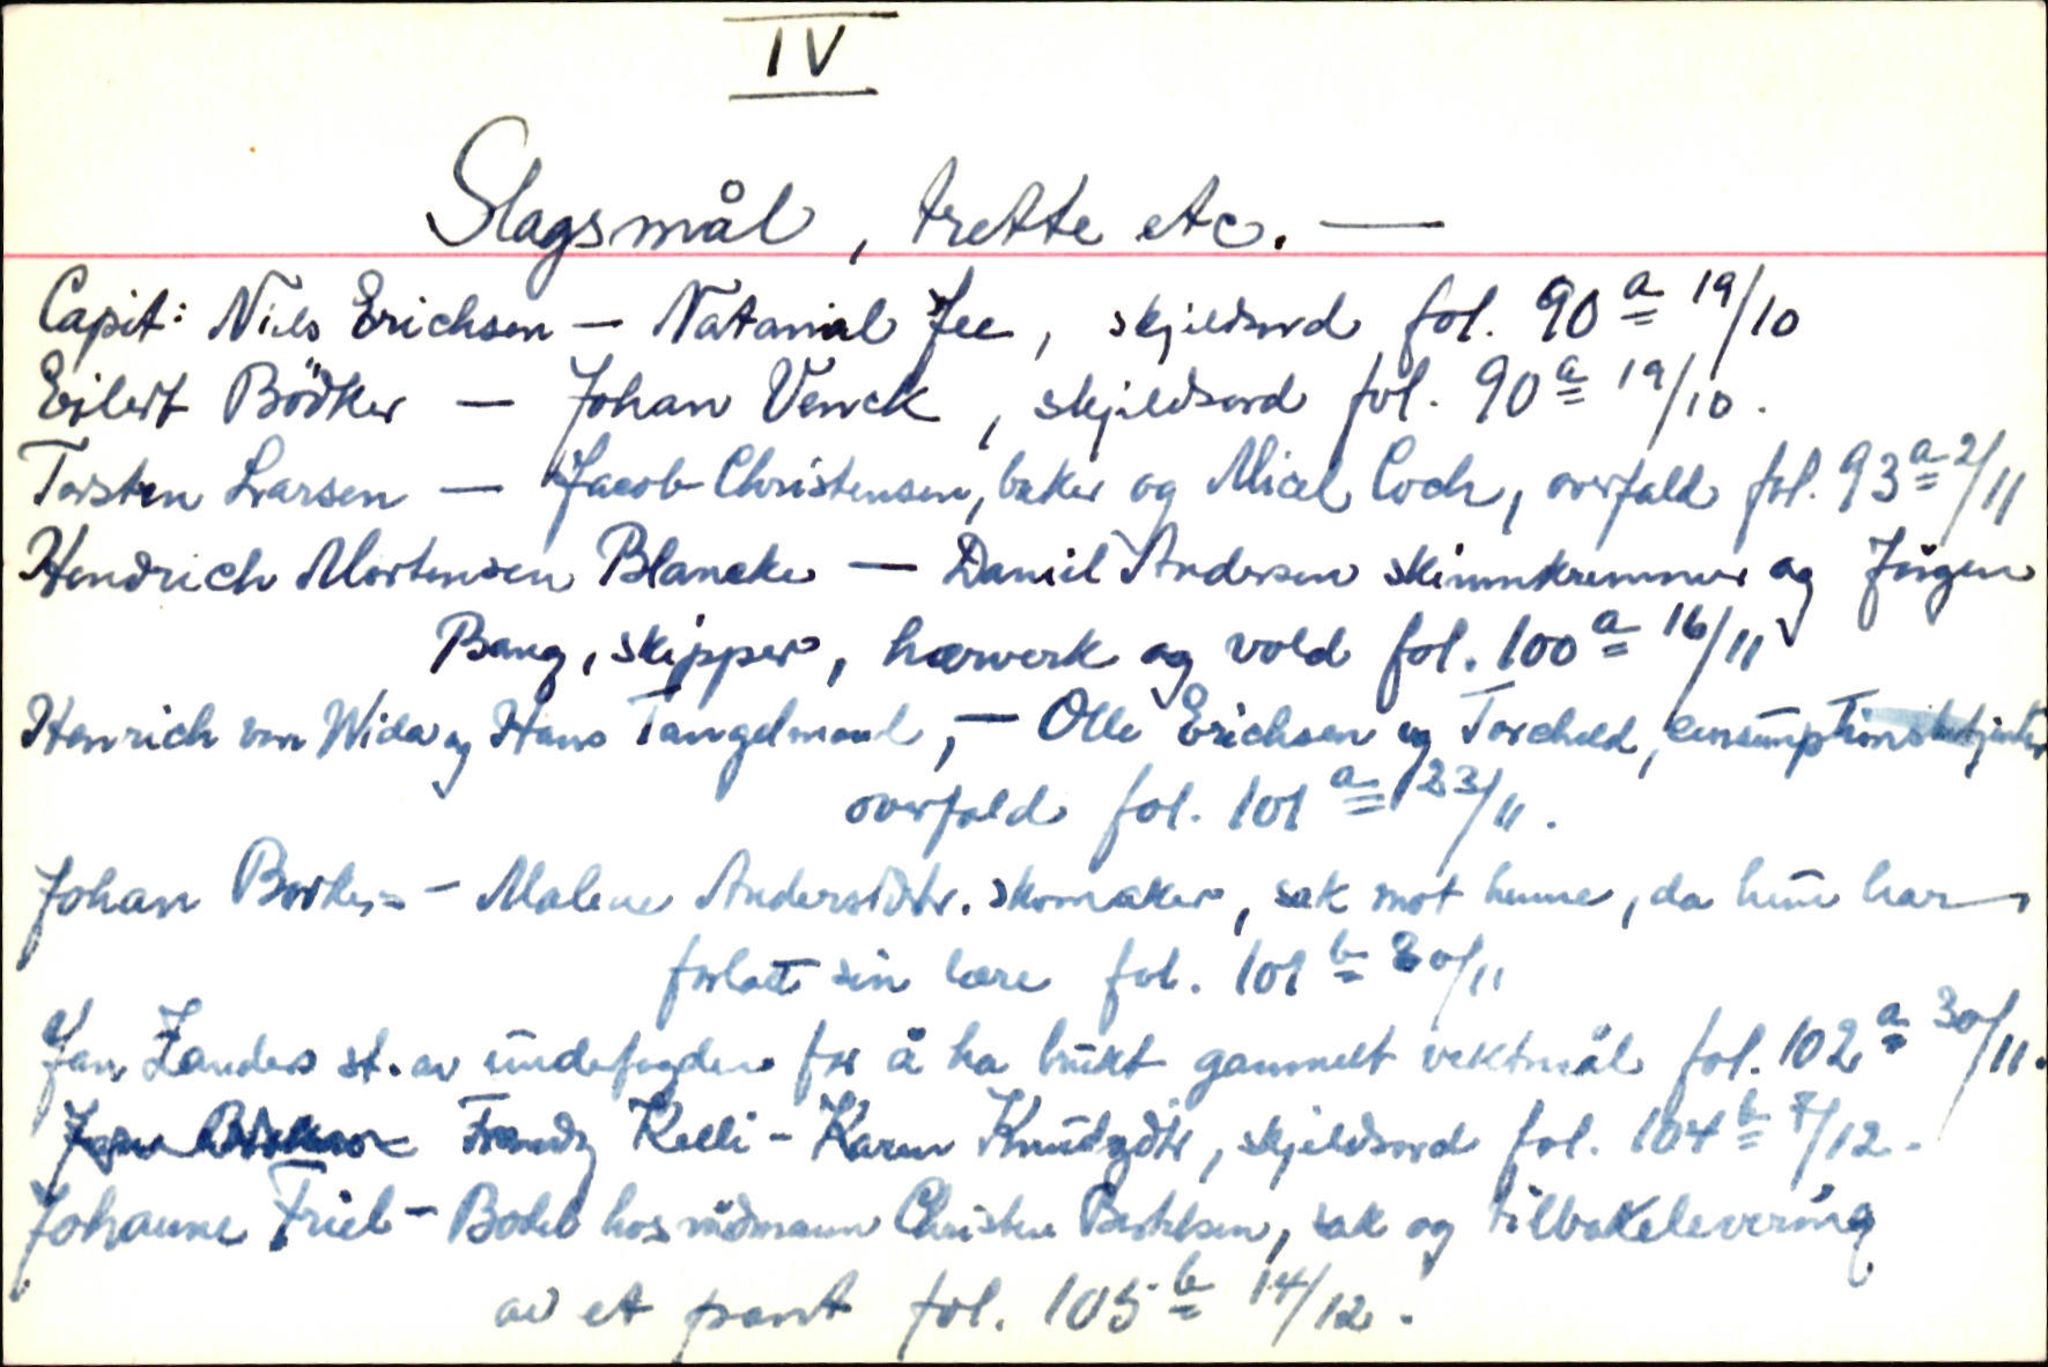 IV
Slagsmål, trette etc. —
Capit: Niels Erichsen — Natanial Jee, skjeldsord fol. 90 a 19/10
Eilert Bödker — Johan Venck, skjeldsord fol. 90 a 19/10.
Torsten Larsen — Jacob Christensen, baker og Micel Coch, overfald fol. 93 a 2/11
Hendrich Mortensen Blancke — Daniel Andersen skinnkremmer og Jörgen
Bang, skipper, hærverk og vold fol. 100 a 16/11
Henrich von Wida og Hans Tangelmand, — Olle Erichsen og Torcheld, consumptionsbetjenter
overfald fol. 101 a 23/11.
Johan - Malene Andersdtr. skomaker, sak mot henne, da hun har
forlatt sin lære fol. 101 b 30/11
Jan Zanders st. av underfogden for å ha brukt gammelt vektmål fol. 102 a 30/11.
Frandz Kelli - Karen Knudzdtr, skjeldsord fol. 104 b 7/12.
Johanne Friel - Bodel hos rådmann Christen Bertelsen, sak og tilbakelevering
av et pant fol. 105 b 14/12.